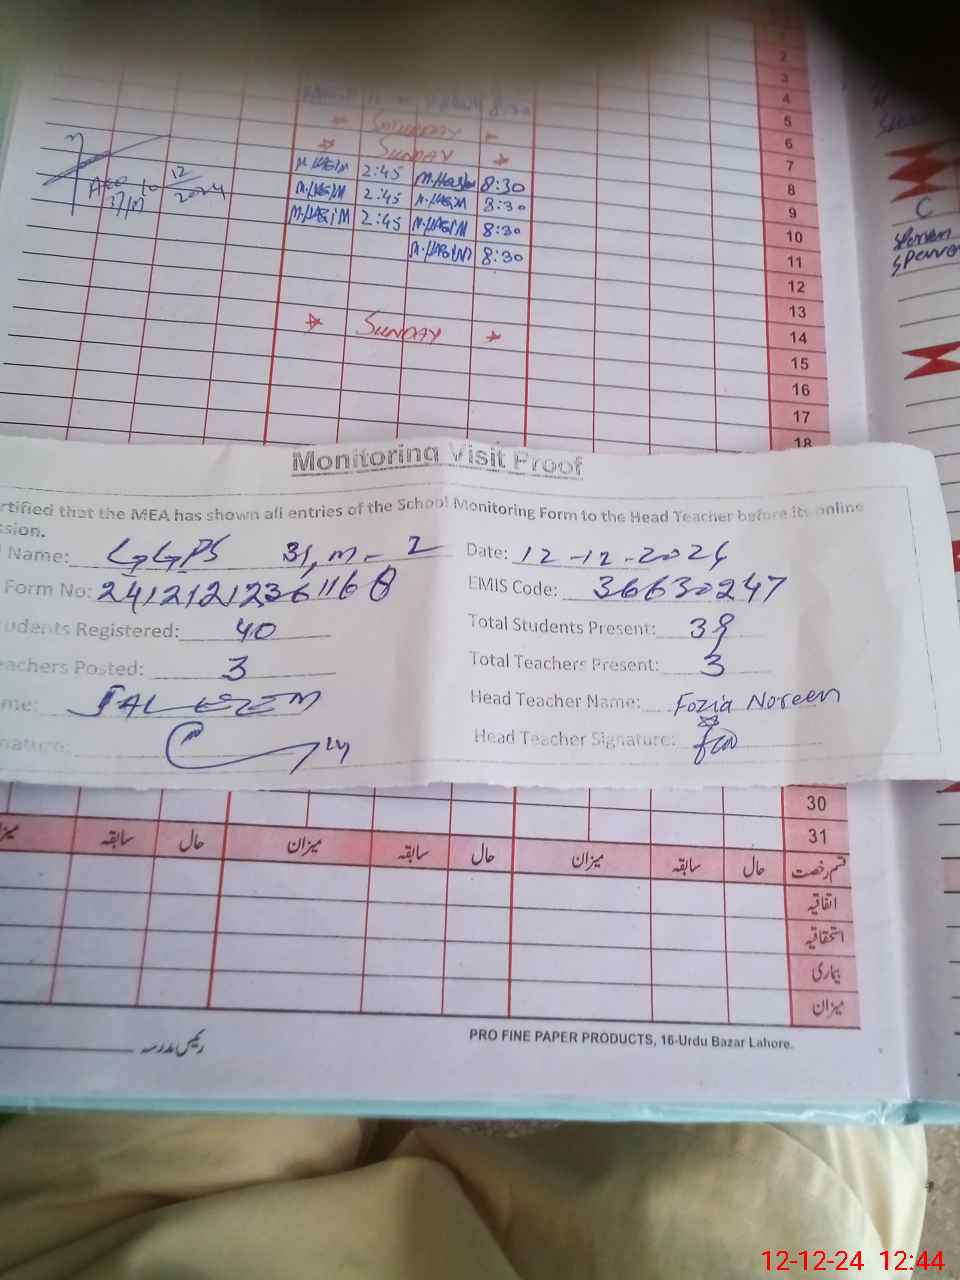 1
2
3
4
8:30
5
SATURDAY
6
SUNDAY
7
2:45 8:30
8
M.HASIM 2:45 M.HASIM 8:30
9
M.HASIM 2:45 M.HASIM 8:30
10
M.HASIM 8:30
11
12
2024
12
13
SUNDAY
14
15
16
17
18
C
Monitoring Visit Proof
rtified that the MEA has shown all entries of the School Monitoring Form to the Head Teacher before its online
ssion.
Name: GGPS 31, M-2 Date: 12-12-2024
Form No: EMIS Code: 36630247
udents Registered: 40 Total Students Present: 38
eachers Posted: 3 Total Teachers Present: 3
me: Head Teacher Name: Fozia Noreen
nature: Head Teacher Signature:
30
31
سابقہ حال میزان سابقہ حال میزان سابقہ حال قسم رخصت
اتفاقیہ
استحقاقیہ
بیماری
میزان
رئیس مدرسہ
PRO FINE PAPER PRODUCTS, 16-Urdu Bazar Lahore.
12-12-24 12:44